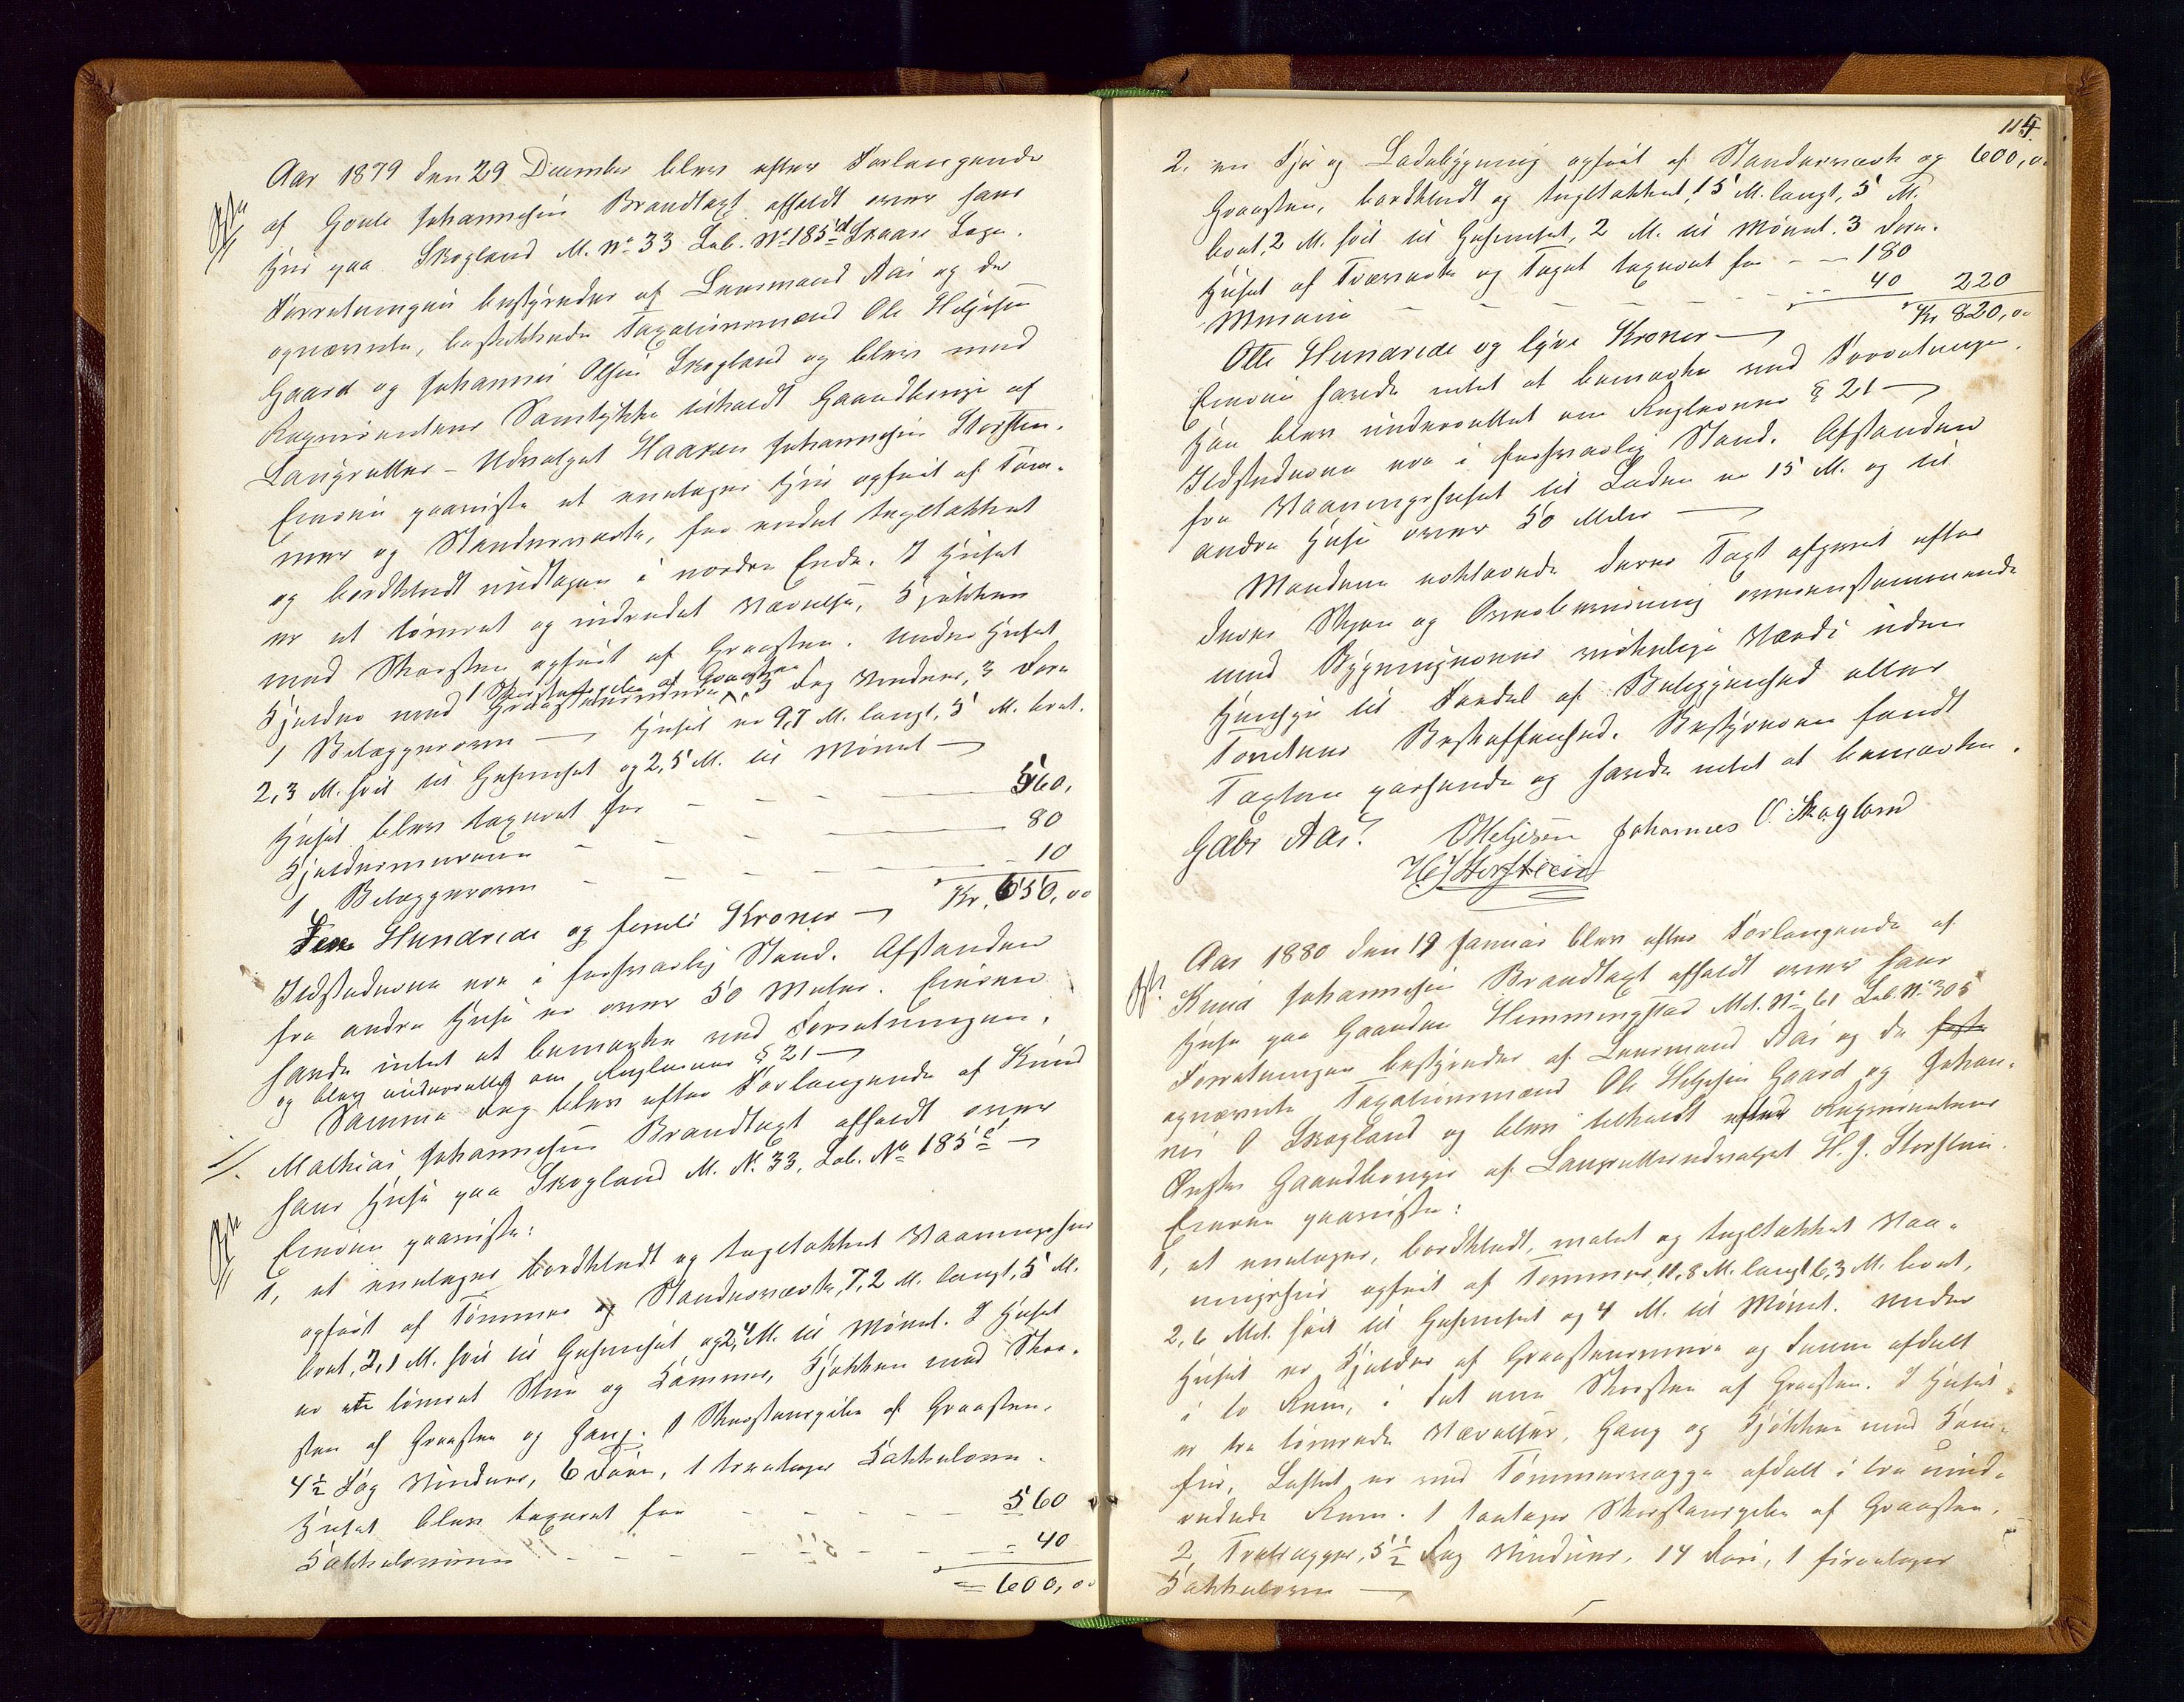 Aar 1879 den 29 December blev efter Forlangende
af Gaute Johannesen Brandtaxt afholdt over hans
Huus paa Skogland M. No 33 Løb. No 185d Skaare Sogn.
Forretningen bestyredes af Lensmand Aai og de
opnævnte, beskikkede Taxationsmænd Ole Helgesen
Gaard og Johannes Olsen Skogland og blev med
Repræsentens Samtykke tilkaldt Gaardbruger af
Langretter-Udvalget Haaken Johannesen Storsteen.
Eieren paaviste et eenetages Huus opført af Tøm-
mer og Stenderværk, for endel tegltækket
og bordklædt undtagen i nordre Ende. I Huset
er et tømret og indredet Værelse, Kjøkken
med Skorsten opført af Graasten. Under Huset
1 Skorstenspibe af Graasten
Kjelder med Graastensmure, 3 Fag Vinduer, 3 Døre
1 Bilæggerovn — Huset er 9,7 M. langt, 5 M. bredt.
2,3 M. høit til Gesimset og 2,5 M. til Mønet —
Huset blev taxeret for - - - 560,
Kjeldermurene - - - 80
1 Bilæggerovn - - - 10
Kr. 650,00
Sex Hundrede og femti Kroner —
Ildstederne ere i forsvarlig Stand. Afstanden
fra andre Huse er over 50 Meter. Eieren
havde intet at bemærke ved Forretningen.
og blev underrettet om Reglernes § 21 —
Samme Dag blev efter Forlangende af Knud
//. Mathias Johannesen Brandtaxt afholdt over
hans Huse paa Skogland M. N. 33, Løb. No 185e —
Eieren paaviste:
1, et eenetages bordklædt og tegltækket Vaaningshus
opført af Tømmer og Stenderværk, 7,2 M. langt, 5 M.
bredt, 2,1 M. høit til Gesimset og 2,4 M. til Mønet. I Huset
er ete tømret Stue og Kammer, Kjøkken med Skor-
sten af Graasten og Gang. 1 Skorstenspibe af Graasten,
4½ Fag Vinduer, 6 Døre, 1 treetages Kakkelovn.
Huset blev taxeret for - - - - - 560
Kakkelovnen - - - - - 40
= 600,00
114
2. en Fjøs og Ladebygning opført af Stenderværk og 600,00
Graasten, bordklædt og tegltækket, 15 M. langt, 5 M.
bredt, 2 M. høit til Gesimset, 2 M. til Mønet. 3 Døre.
Huset af Træværk og Taget taxeret for - - 180
Murene - - - - 40 220
Kr 820,00
Otte Hundrede og tyve Kroner —
Eieren havde intet at bemærke ved Forretningen.
Han blev underrettet om Reglernes § 21 —
Ildstederne ere i forsvarlig Stand. Afstanden
fra Vaaningshuset til Laden er 15 M. og til
andre Huse over 50 Meter —
Mændene erklærede deres Taxt afgivet efter
deres Skjøn og Overbeviisning overensstemmende
med Bygningernes virkelige Værdi uden
Hensyn til Fordel af Beliggenhed eller
Tomtens Beskaffenhed. Bestyreren fandt
Taxten passende og havde intet at bemærke.
Gabr Aai. OHelgesen Johannes O. Skogland
HJStorsteen
Aar 1880 den 19 Januar blev efter Forlangende af
Knud Johannesen Brandtaxt afholdt over hans
Huse paa Gaarden Hemmingstad Mat. No 61 Løb. No 305
Forretningen bestyredes af Lensmand Aai og de faste
opnævnte Taxationsmænd Ole Helgesen Gaard og Johan-
nes O Skogland og blev tilkaldt efter Repræsentens
Ønske Gaardbruger af Langrettesudvalget H. J. Storsteen.
Eieren paaviste:
1, et eenetages, bordklædt, malet og tegltækket Vaa-
ningshus opført af Tømmer, 11,8 M. langt 6,3 M. bredt,
2,6 Met. høit til Gesimset og 4 M. til Mønet. Under
Huset er Kjelder af Graastensmure og denne afdelt
i to Rum, i det ene Skorsten af Graasten. I Huset
er tre tømrede Værelser, Gang og Kjøkken med Kom-
fur, Loftet er med Tømmervægge afdelt i tre ind-
redede Rum. 1 toetages Skorstenspibe af Graasten,
2 Trætrapper, 5½ Fag Vinduer, 14 Døre, 1 fireetages
Kakkelovn —